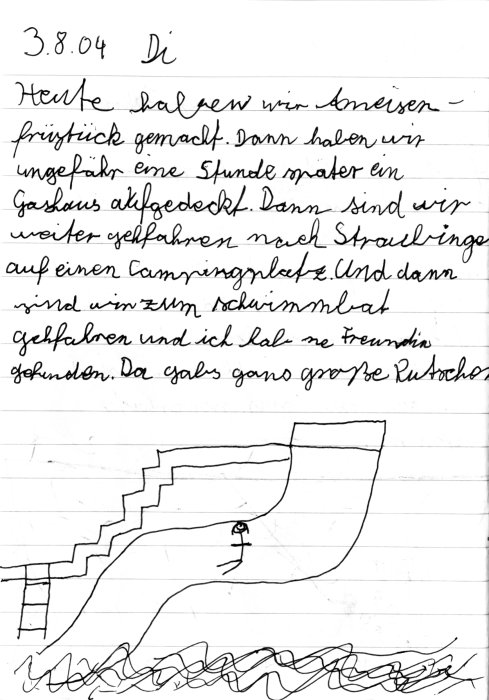 3.8.04 Di
Heute haben wir Ameisen-
früstück gemacht. Dann haben wir
ungefähr eine Stunde später ein
Gashaus aufgedeckt. Dann sind wir
weiter gehfahren nach Straubinge
auf einen Campingplatz. Und dann
sind wir zum schwimmbat
gehfahren und ich hab ne Freundin
gefunden. Da gabs gans große Rutschen